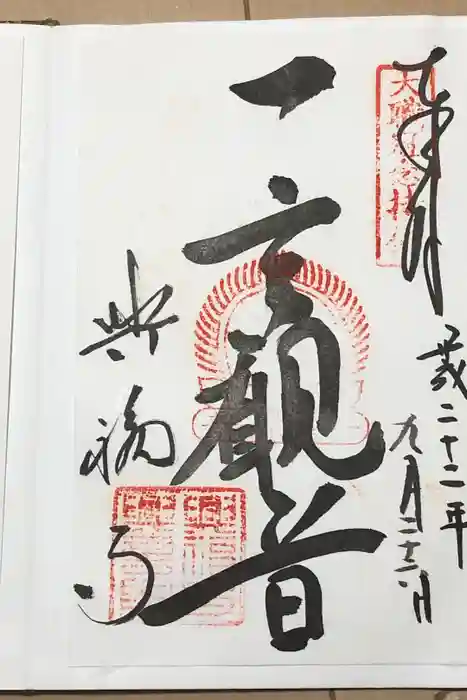 奉拝
平成二十二年
九月二十六日
一言観音
興福寺